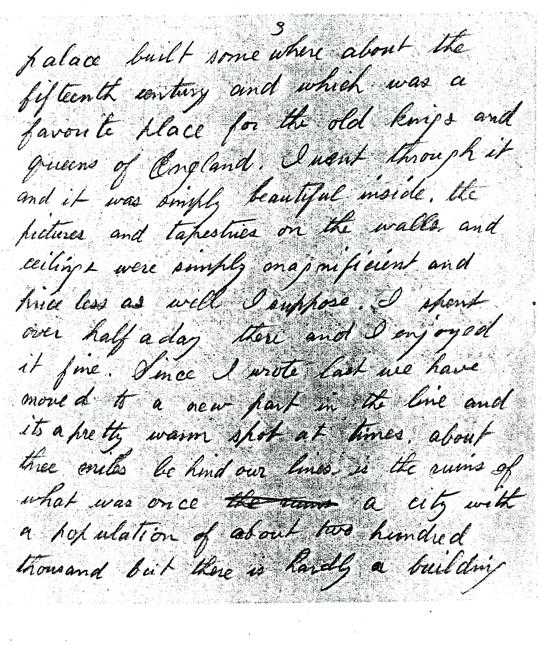 3
palace built some where about the
fifteenth century and which was a
favorite place for the old kings and
queens of England. I went through it
and it was simply beautiful inside. the
pictures and tapestries on the walls and
ceilings were simply magnificient and
price less as well I suppose. I spent
over half a day there and I enjoyed
it fine. Since I wrote last we have
moved to a new part in the line and
its a pretty warm spot at times. about
three miles be hind our lines is the ruins of
what was once the ruins a city with
a population of about two hundred
thousand but there is hardly a building